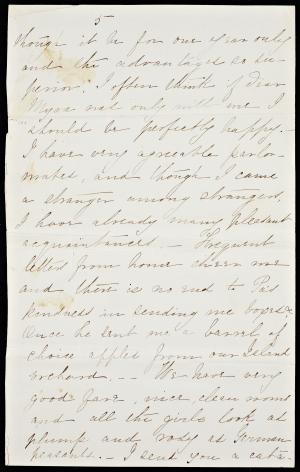 5
though it be for one year only
and the advantages so su-
perior. I often think if dear
was only with me I
should be perfectly happy. -
I have very agreeable parlor
mates, and though I came
a stranger among strangers,
I have already many pleasant
acquaintances. - Frequent
letters from home cheer me
and there is no end to Pa's
kindness in sending me boxes &c
Once he sent me a barrel of
choice apples from our Island
orchard. - - We have very
good fare, nice, clean rooms
and all the girls look as
plump and rosy as German
peasants. - I send you a cata-